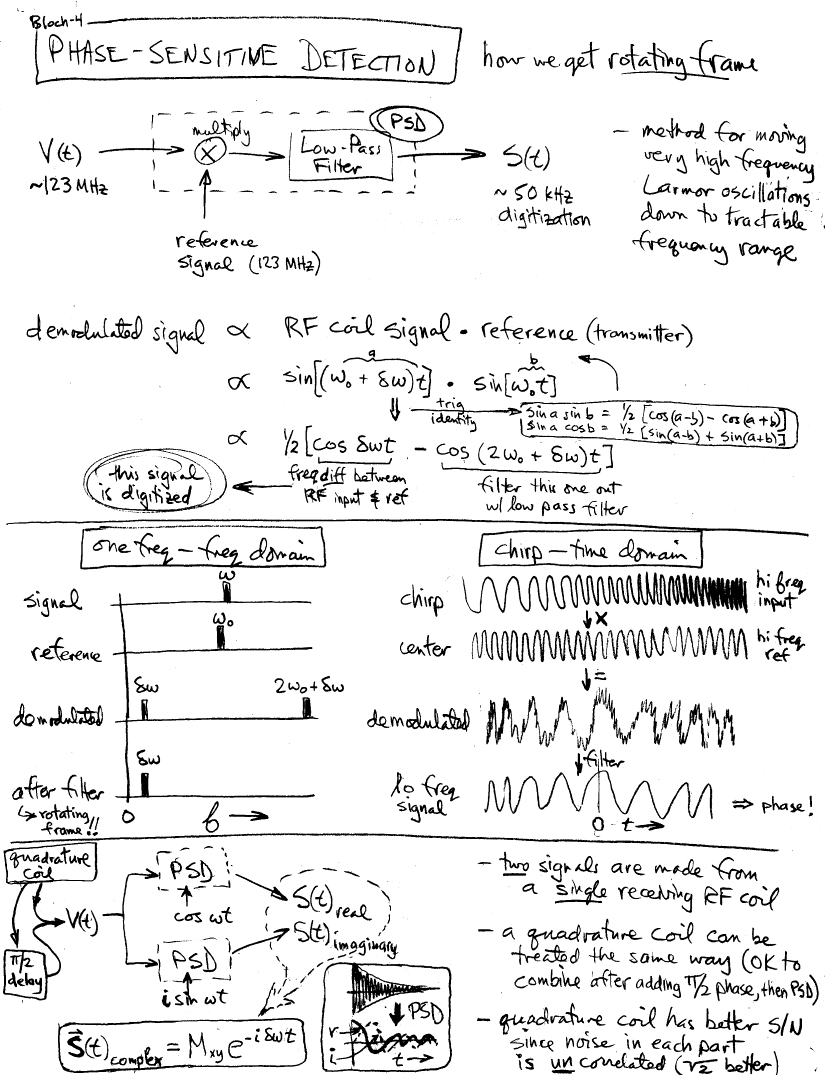 Bloch-4
PHASE-SENSITIVE DETECTION
how we get rotating frame
V(t)
~123 MHz
multiply
×
Low-Pass
Filter
PSD
S(t)
~50 kHz
digitization
reference
signal (123 MHz)
- method for moving
very high frequency
Larmor oscillations
down to tractable
frequency range
demodulated signal ∝ RF coil signal • reference (transmitter)
a
b
∝ sin[(ω₀ + δω)t] • sin[ω₀t]
⇓ trig
identity
sin a sin b = 1/2 [cos(a-b) - cos(a+b)]
sin a cos b = 1/2 [sin(a-b) + sin(a+b)]
∝ 1/2 [cos δωt - cos (2ω₀ + δω)t]
this signal
is digitized
freq diff between
RF input & ref
filter this one out
w/ low pass filter
one freq - freq domain
signal
ω
reference
ω₀
demodulated
δω
2ω₀ + δω
after filter
δω
↳ rotating
frame!!
0 f →
chirp - time domain
chirp
hi freq
input
↓ ×
center
hi freq
ref
↓ =
demodulated
↓ filter
lo freq
signal
⇒ phase!
0 t →
quadrature
coil
π/2
delay
V(t)
PSD
cos ωt
PSD
i sin ωt
S(t) real
S(t) imaginary
S(t) complex = Mxy e^-iδωt
PSD
r
i
t →
- two signals are made from
a single receiving RF coil
- a quadrature coil can be
treated the same way (OK to
combine after adding π/2 phase, then PSD)
- quadrature coil has better S/N
since noise in each part
is uncorrelated (√2 better)